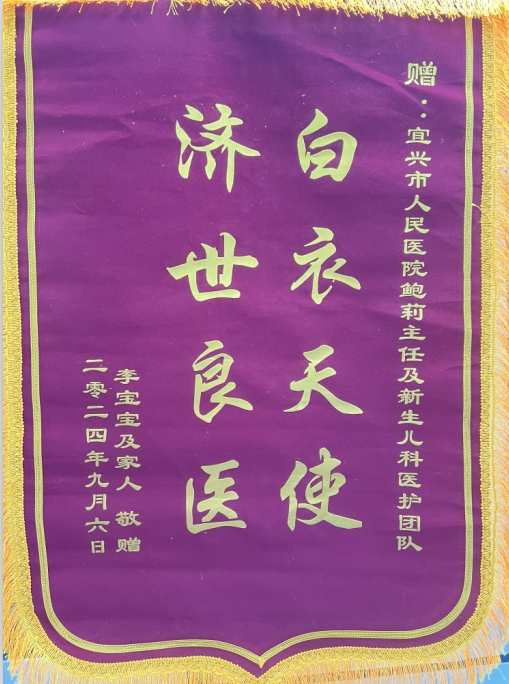 赠：宜兴市人民医院鲍莉主任及新生儿科医护团队
白衣天使
济世良医
李宝宝及家人 敬赠
二零二四年九月六日